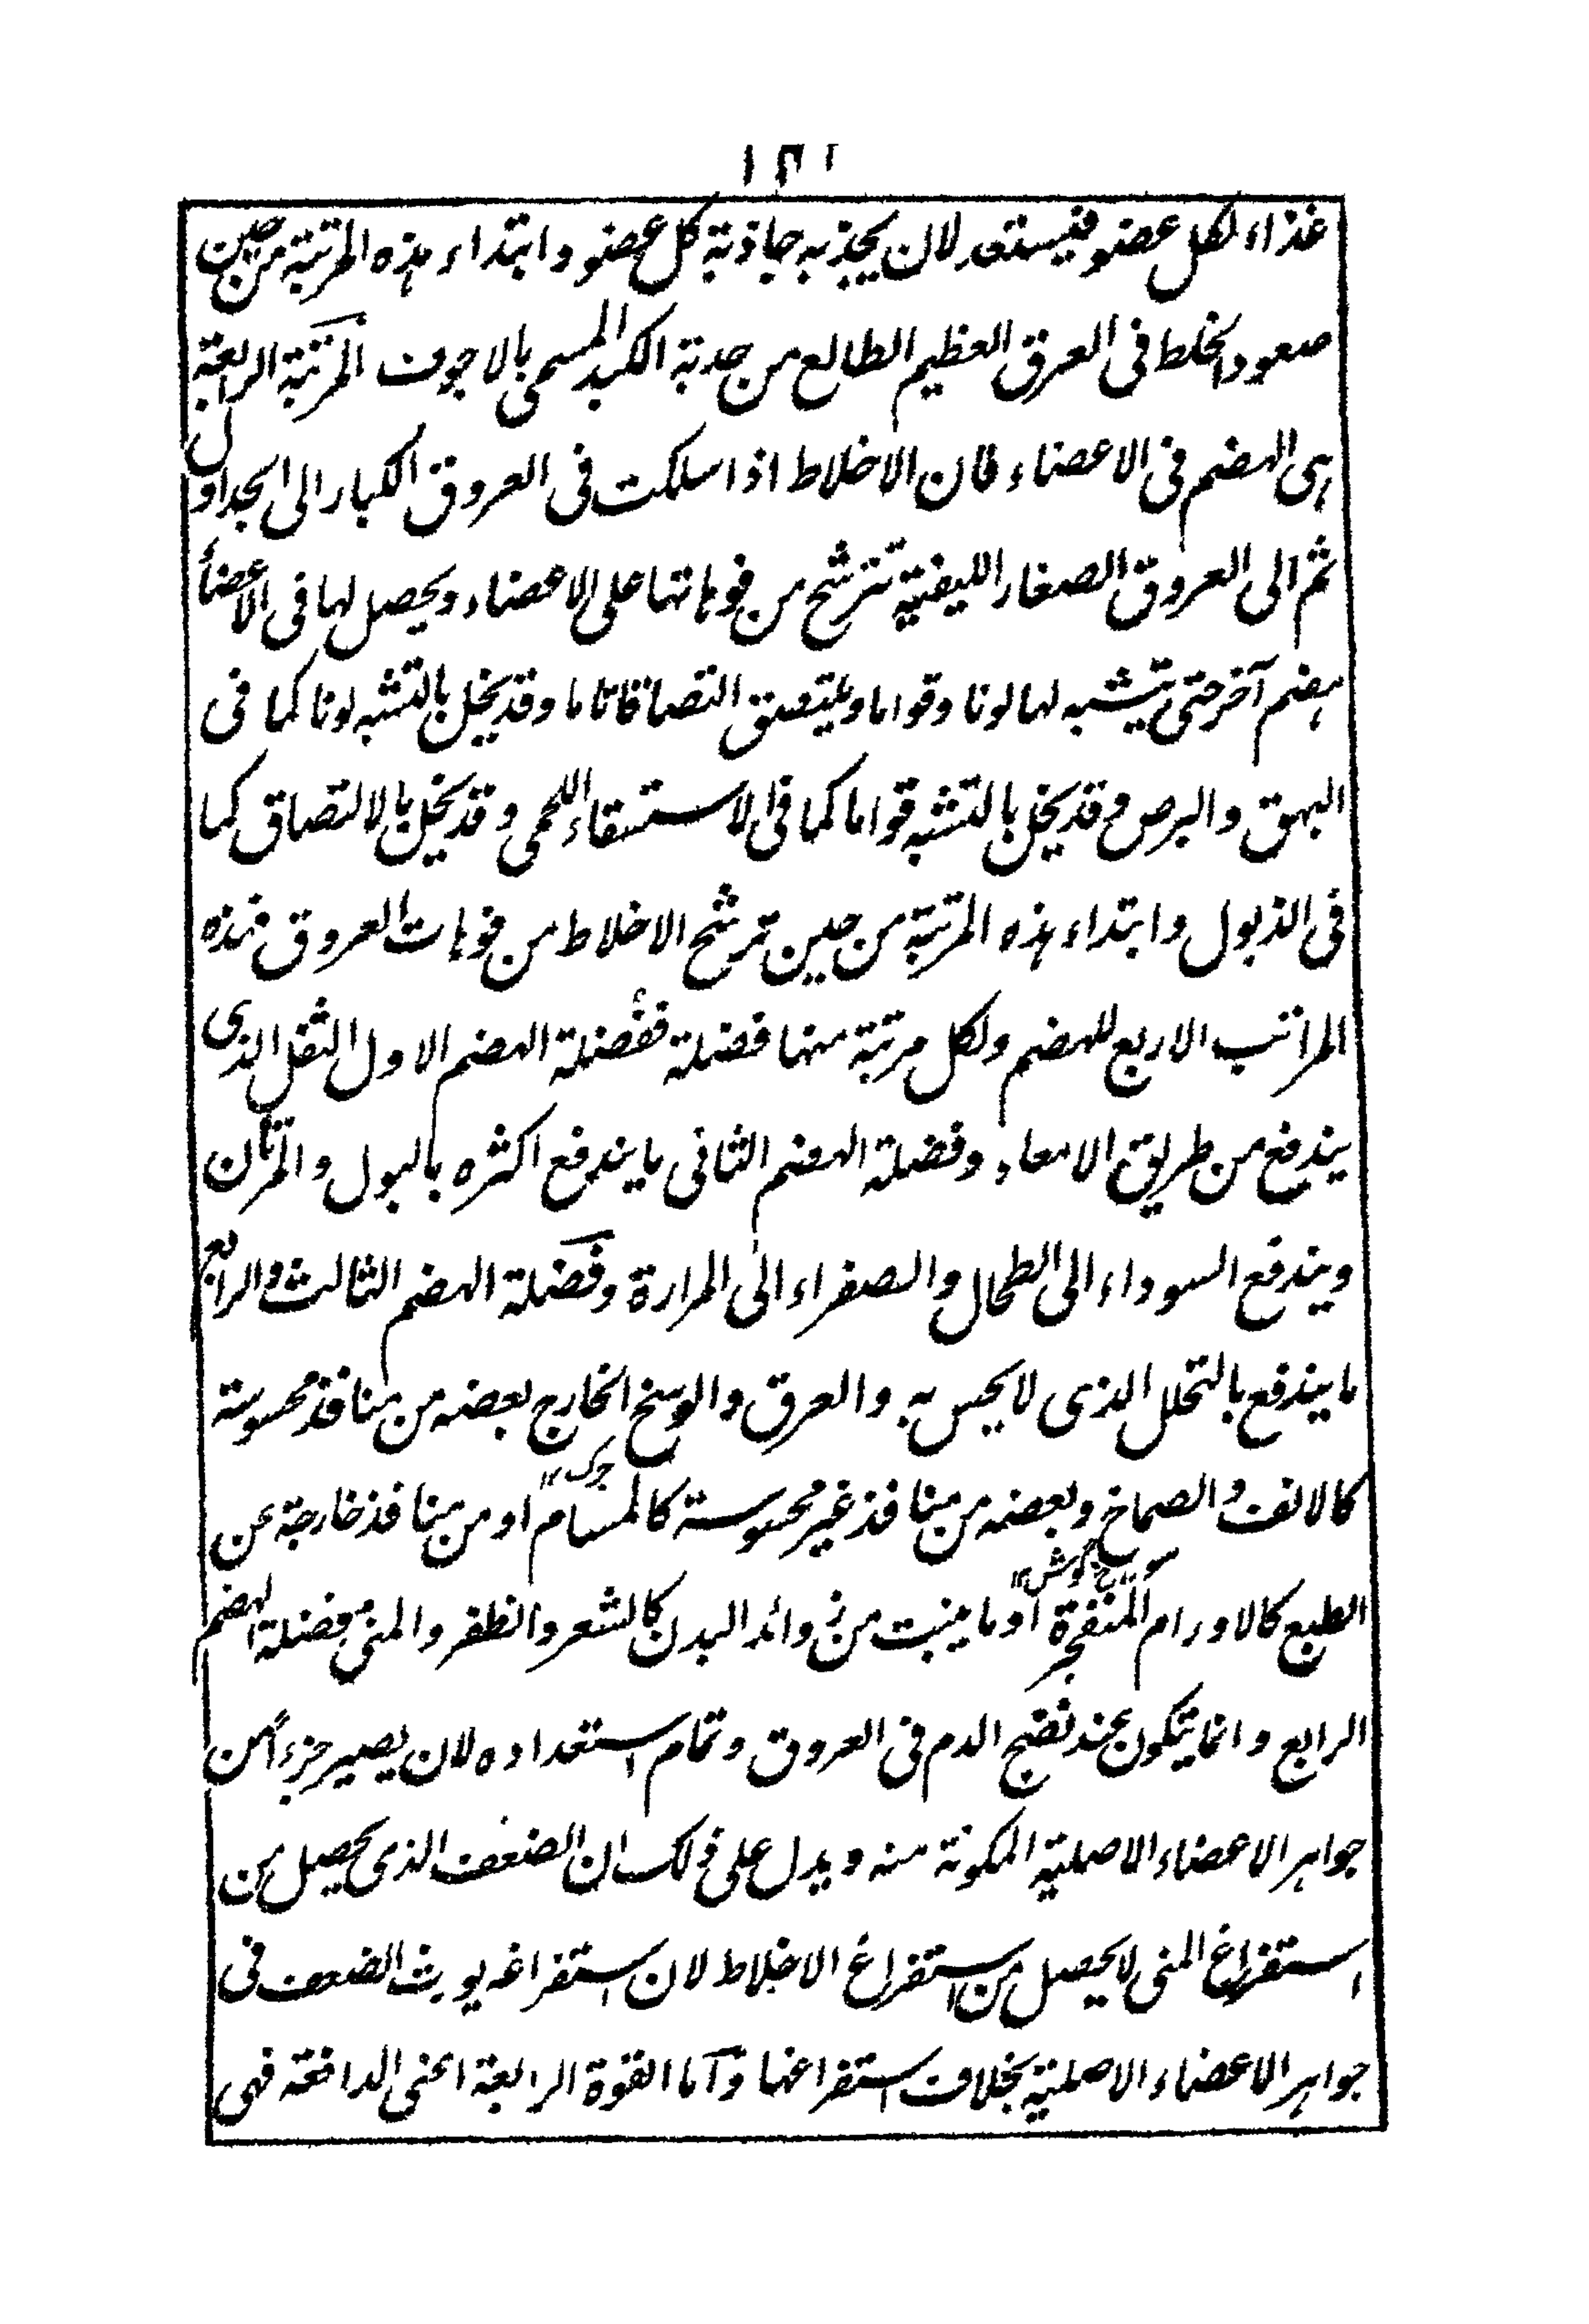 غذاء لكل عضو فيستعد لان يجذبه جاذبة كل عضو وابتداء هذه المرتبة من حين
صعود الخلط فى العرق العظيم الطالع من حدبة الكبد المسمى بالاجوف المرتبة الرابعة
هى الهضم فى الاعضاء فان الاخلاط اذا سلكت فى العروق الكبار الى الجداول
ثم الى العروق الصغار الليفية تترشح من فوهاتها على الاعضاء ويحصل لها فى الاعضأ
هضم آخر حتى يتشبه لها لونا وقواما ويلتصق التصاقا تاما وقد يخل بالتشبه لونا كما فى
البهق والبرص وقد يخل بالتشبه قواما كما فى الاستسقاء اللحمى وقد يخل بالالتصاق كما
فى الذبول وابتداء هذه المرتبة من حين ترشح الاخلاط من فوهات العروق فهذه
المراتب الاربع للهضم ولكل مرتبة منها فضلة ففضلة الهضم الاول الثفل الذى
يندفع من طريق الامعاء وفضلة الهضم الثانى ما يندفع اكثره بالبول والمرتان
ويندفع السوداء الى الطحال والصفراء الى المرارة وفضلة الهضم الثالث والرابع
ما يندفع بالتحلل الذى لا يحس به والعرق والوسخ الخارج بعضه من منافذ محسوسة
چرک ١٢
كالانف والصماخ وبعضه من منافذ غير محسوسة كالمسام او من منافذ خارجة عن
گوش ١٢
الطبع كالاورام المنفجرة او ما ينبت من زوائد البدن كالشعر والظفر والمنى فضلة الهضم
الرابع وانما يتكون عند نضج الدم فى العروق وتمام استعداده لان يصير جزءاً من
جواهر الاعضاء الاصلية المكونة منه ويدل على ذلك ان الضعف الذى يحصل من
استفراغ المنى لا يحصل من استفراغ الاخلاط لان استفراغه يورث الضعف فى
جواهر الاعضاء الاصلية بخلاف استفراغها وآما القوة الرابعة اعنى الدافعة فهى